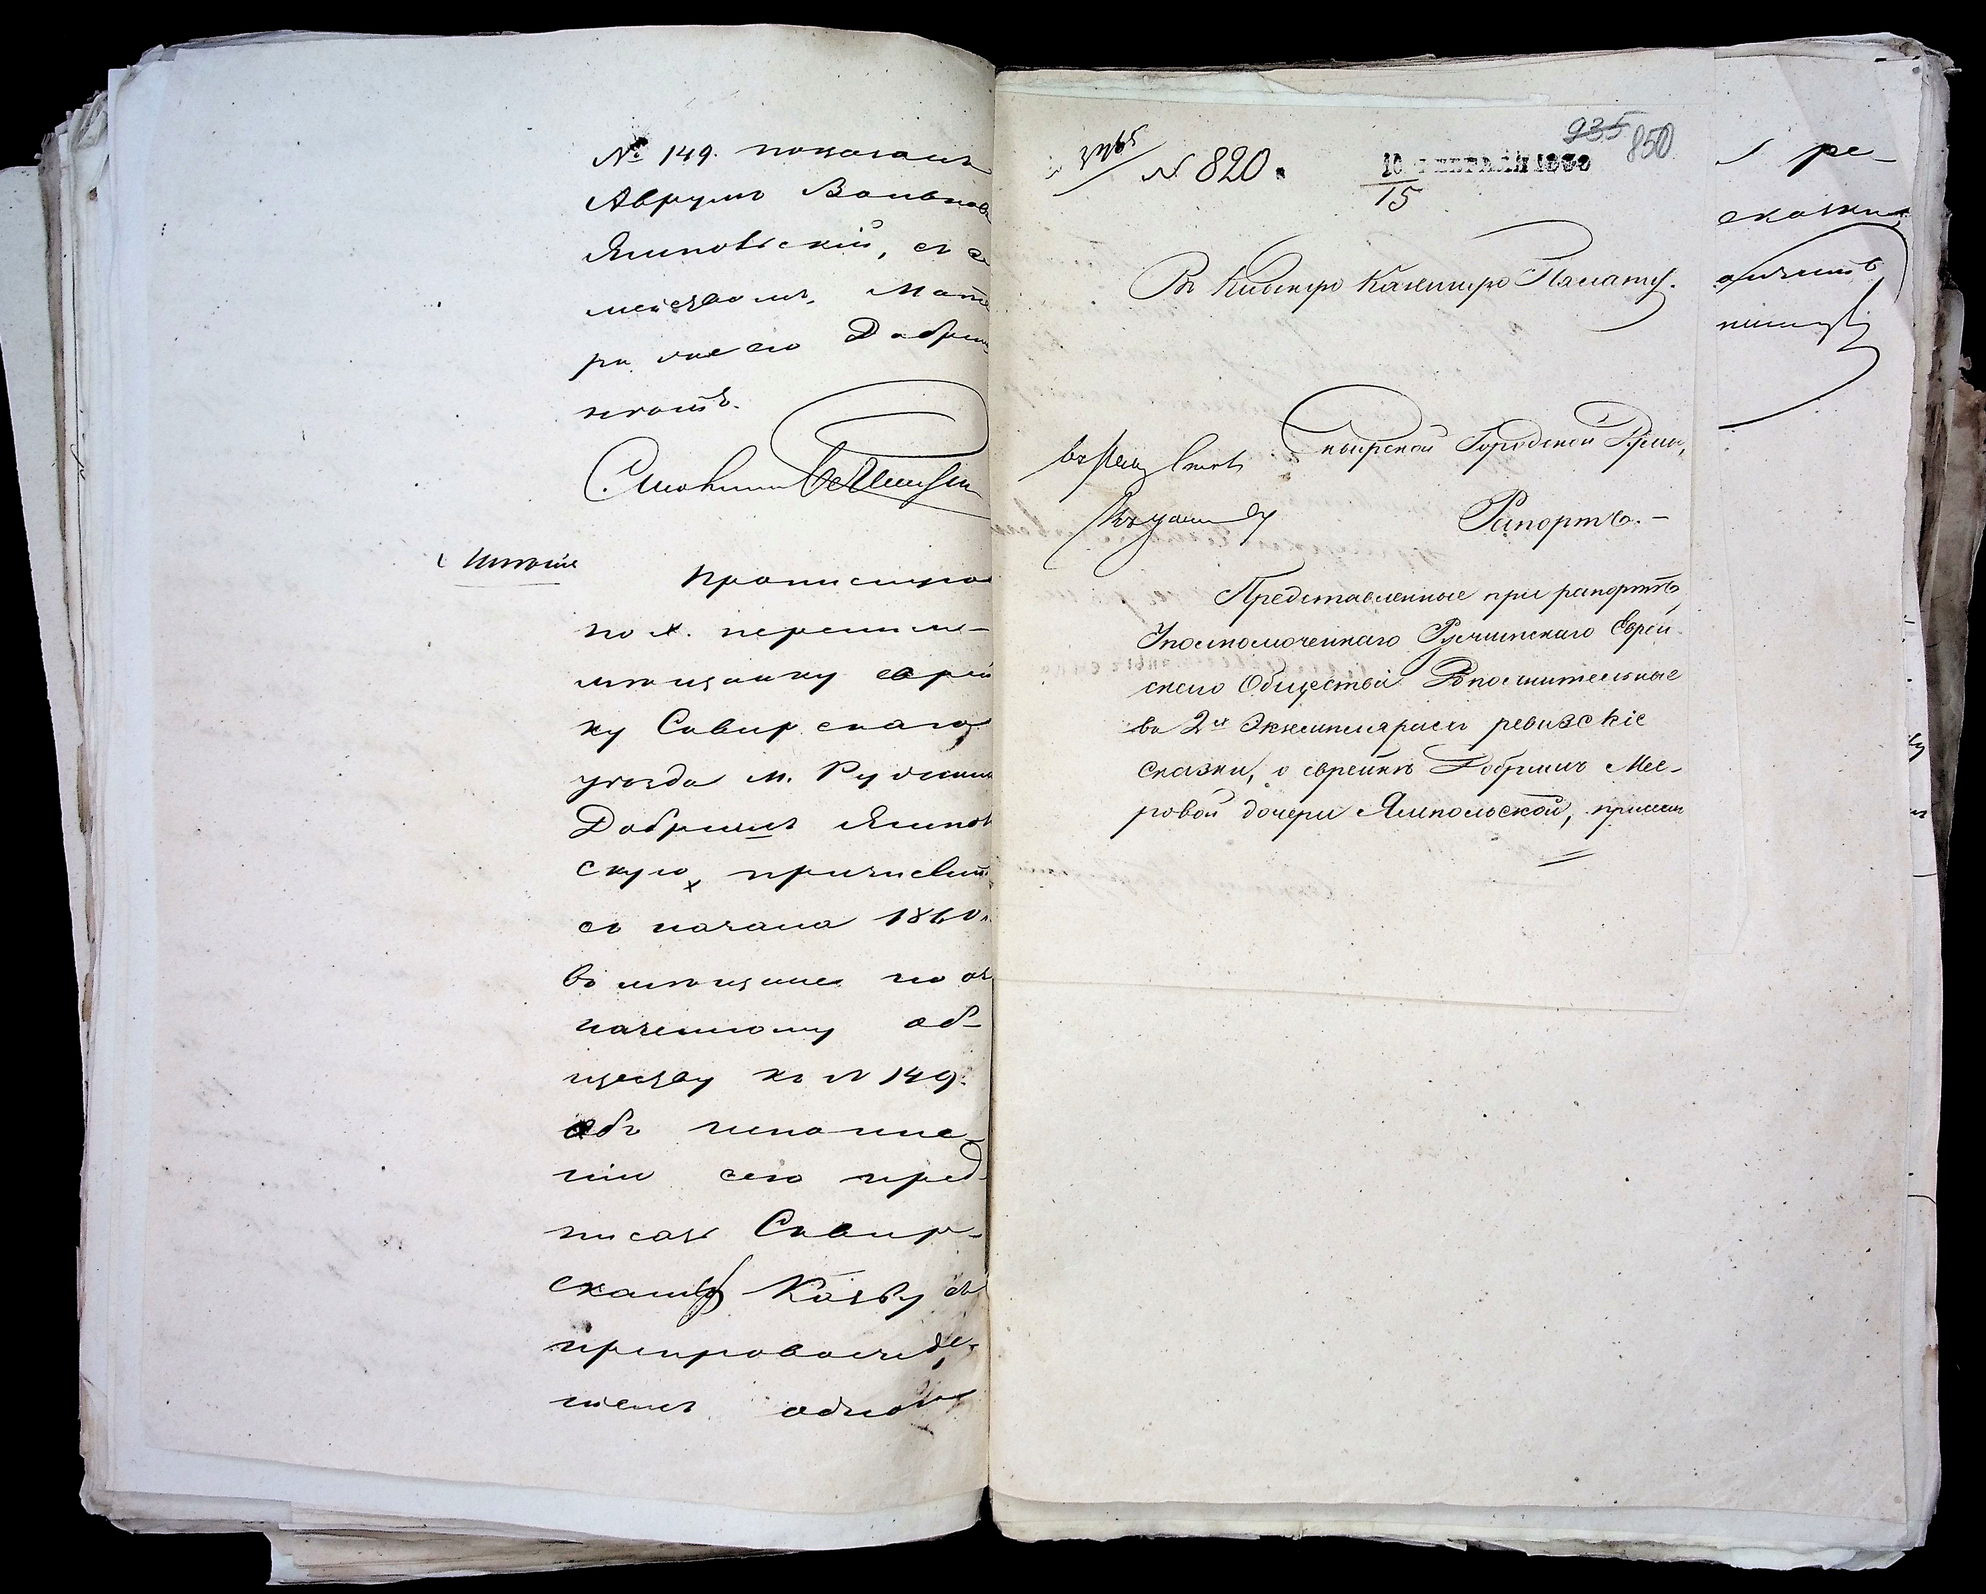 № 149. показанъ
Аврумъ Вольков
Ямпольскій, съ се
мействомъ. Мате
ри же его Добрыш
нѣтъ.
Мнѣніе
Прописанную
по X. перепи
мѣщанку еврей
ку Сквирскаго
уѣзда м. Ружина
Добрышъ Ямполь
скую, причислить
съ начала 1860 г.
въ мѣщане по оз
наченному об-
ществу къ № 149.
Объ исполне-
ніи сего пред-
писать Сквир-
скому Казву съ
препровожде-
ніемъ одного
№ 820.
935 850
10 ФЕВРАЛЯ 1860
15
Въ Кіевскую Казенную Палату.
Сквирской Городской Думы,
Рапортъ.
Представленные при рапортѣ
Уполномоченнаго Ружинскаго Еврей-
скаго Общества Дополнительные
въ 2х Экземплярахъ ревизскіе
сказки, о еврейкѣ Добришъ Мее-
ровой дочери Ямпольской, причи
ре-
сказки